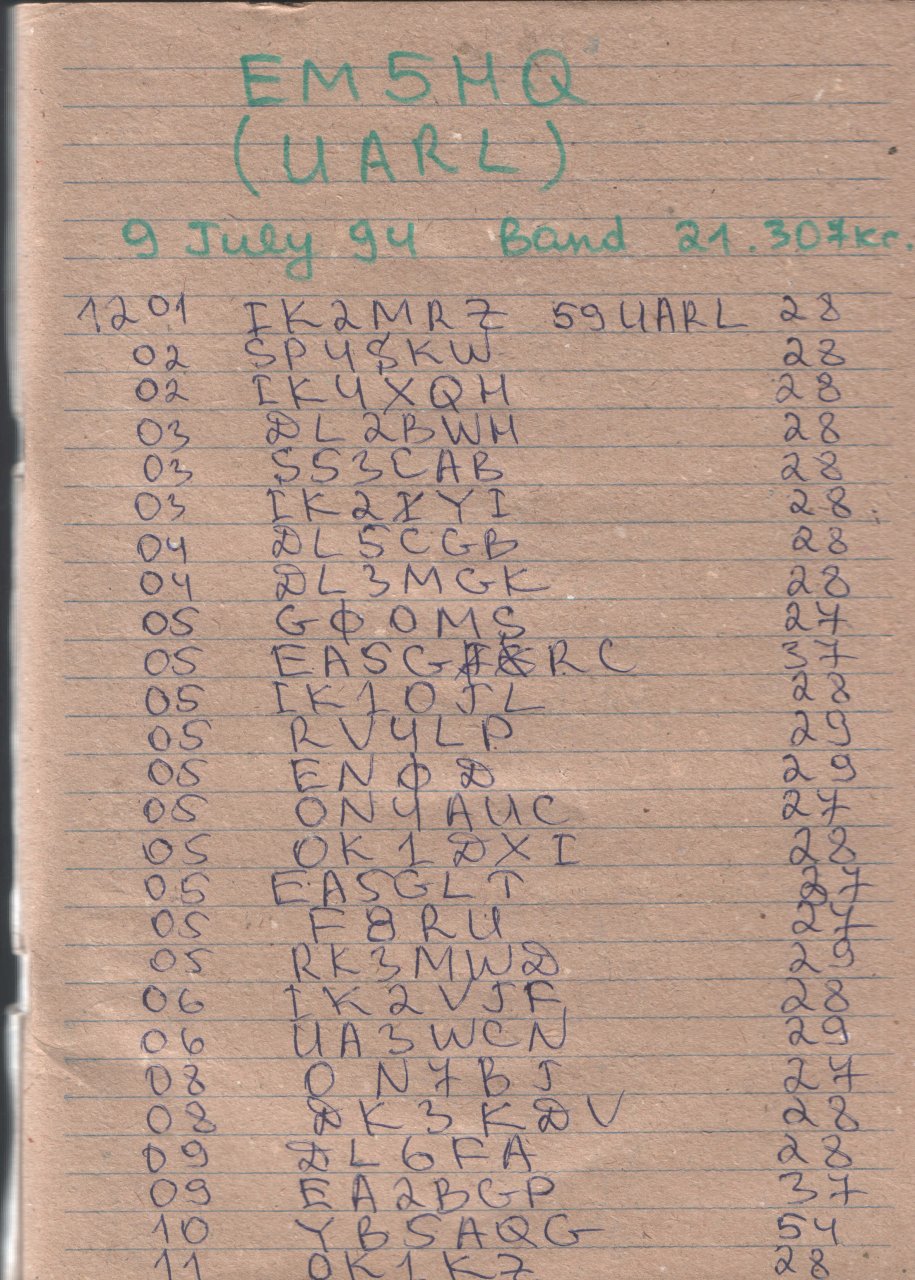 EM5HQ
(UARL)
9 July 94 Band 21.307кс.
1201 IK2MRZ 59UARL 28
02 SP4SKW 28
02 IK4XQH 28
03 DL2BWH 28
03 S53CAB 28
03 IK2XYI 28
04 DL5CGB 28
04 DL3MGK 28
05 GØOMS 27
05 EA5GRC 37
05 IK1OJL 28
05 RV4LP 29
05 ENØD 29
05 ON4AUC 27
05 OK1DXI 28
05 EA5GLT
05 F8RU 27
05 RK3MWD 29
06 IK2VJF 28
06 UA3WCN 29
08 ON7BJ 27
08 DK3KDV 28
09 DL6FA 28
09 EA2BGP 37
10 YB5AQG 54
11 OK1KZ 28